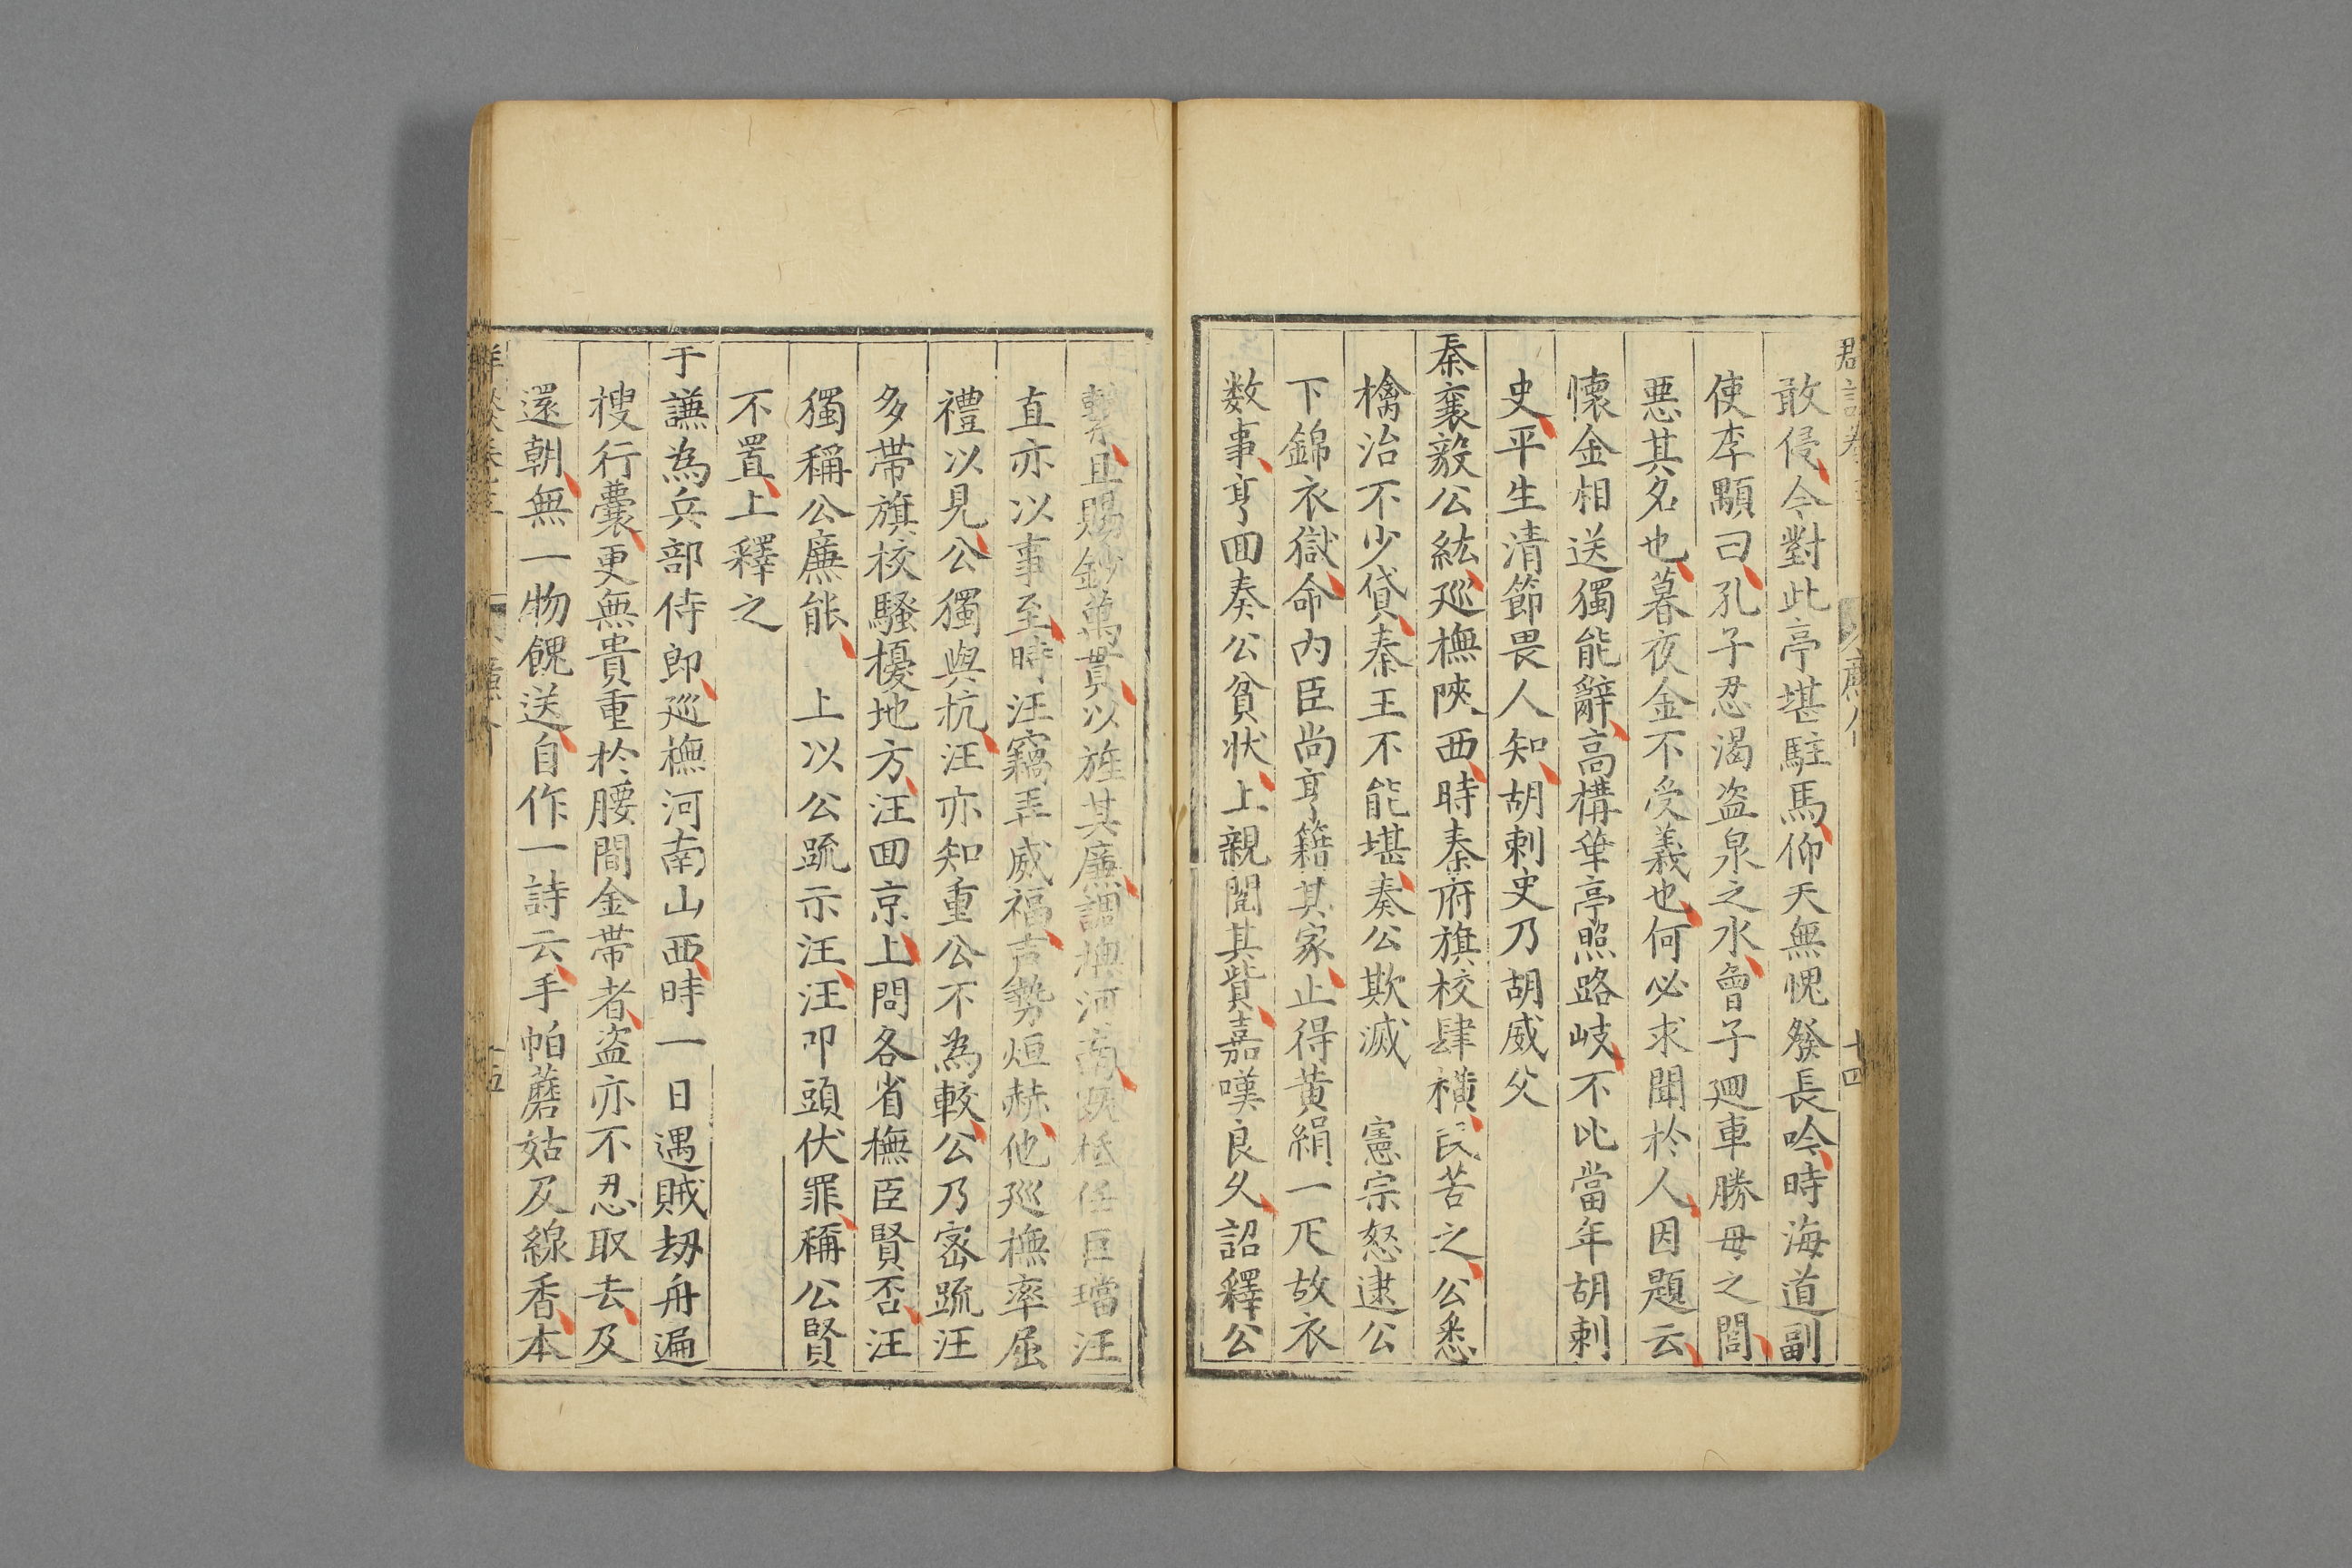 敢侵今對此亭堪駐馬仰天無愧發長吟時海道副
使李顒曰孔子忍渴盗泉之水曾子廻車勝毋之閭
惡其名也暮夜金不受義也何必求聞於人因題云
懷金相送獨能辭高構華亭照路岐不比當年胡刺
史平生清節畏人知胡刺史乃胡威父
秦襄毅公紘廵撫陝西時秦府旗校肆橫民苦之公悉
擒治不少貸秦王不能堪奏公欺滅 憲宗怒逮公
下錦衣獄命內臣尚亨籍其家止得黃絹一疋故衣
数事亨回奏公貧狀上親閲其貲嘉嘆良久詔釋公
繫且賜鈔萬貫以旌其廉調撫河南既抵任巨璫汪
直亦以事至時汪竊弄威福声勢烜赫他廵撫率屈
禮以見公獨與抗汪亦知重公不為較公乃宻疏汪
多帶旗校騷擾地方汪回京上問各省撫臣賢否汪
獨稱公廉能 上以公疏示汪汪叩頭伏罪稱公賢
不置上釋之
于謙為兵部侍郎廵撫河南山西時一日遇賊刼舟遍
搜行囊更無貴重於腰間金帶者盗亦不忍取去及
還朝無一物餽送自作一詩云手帕蘑姑及線香本